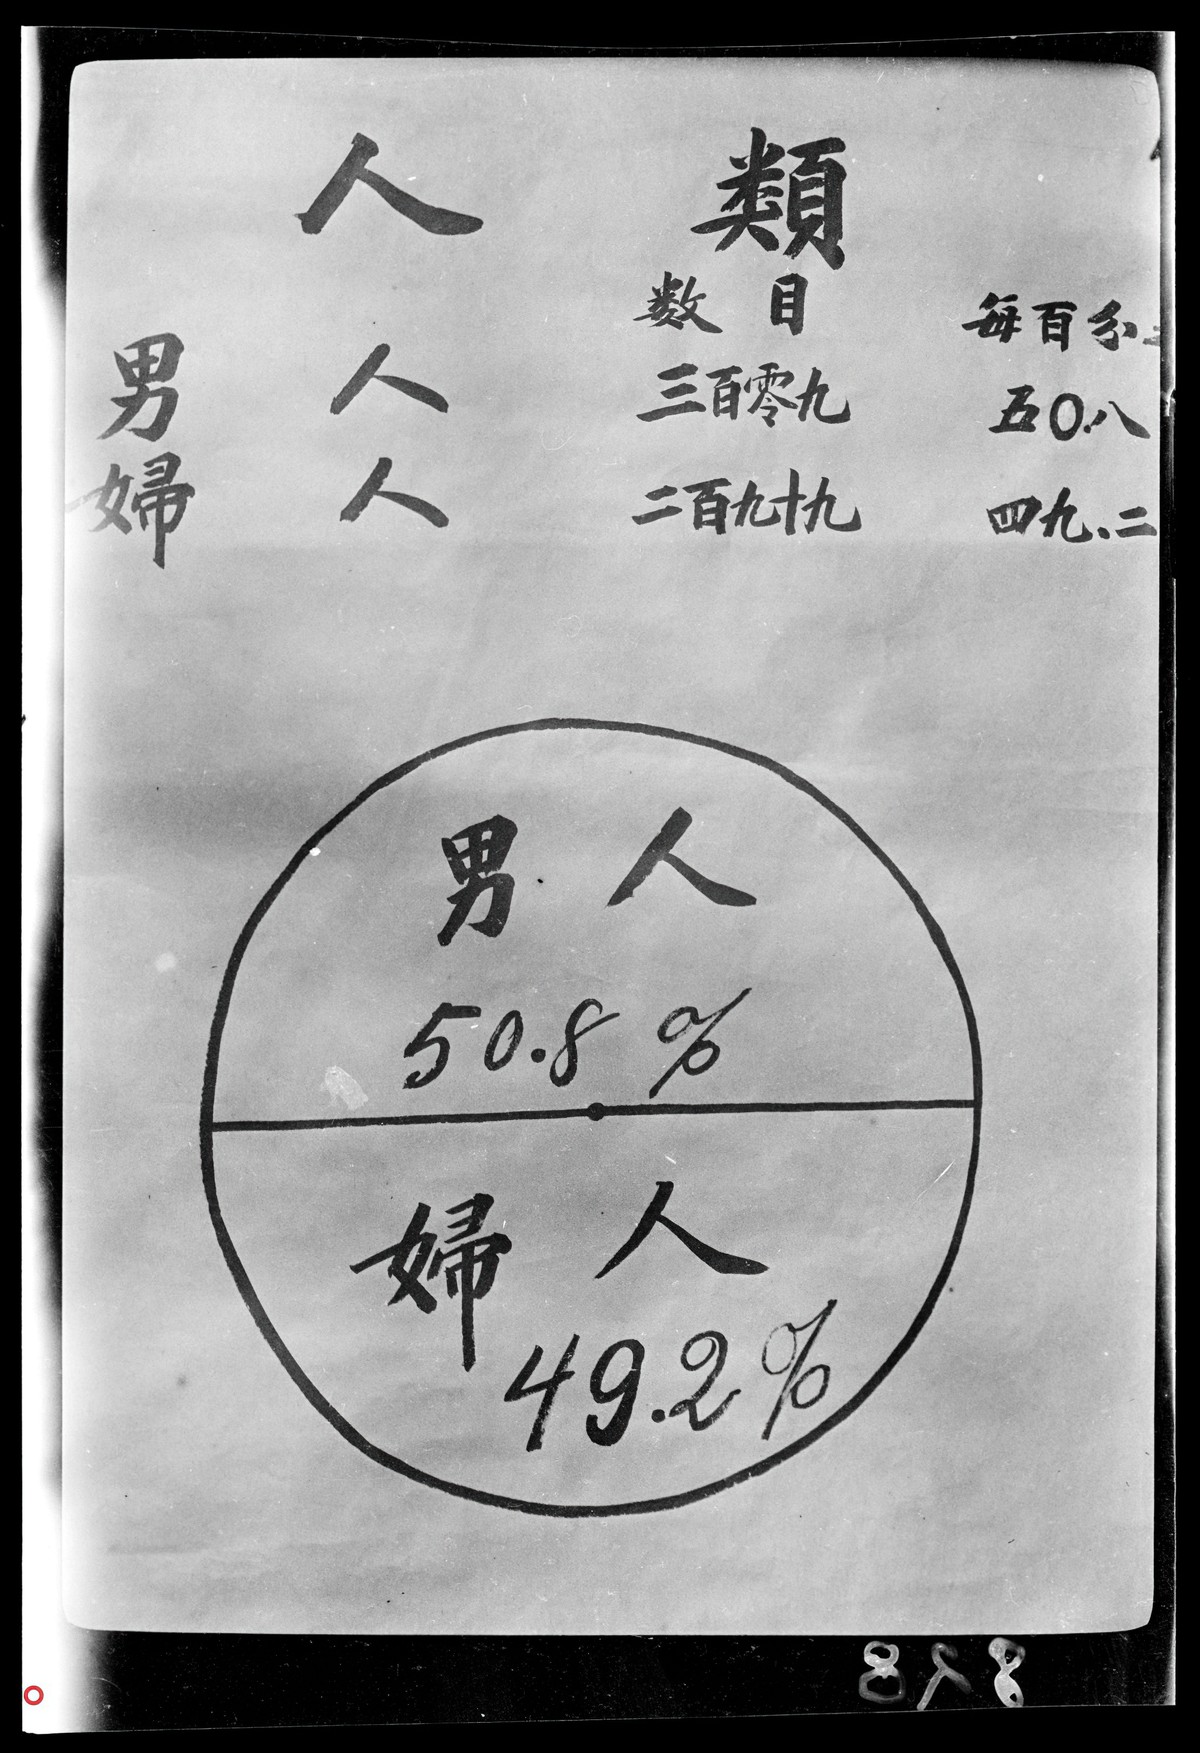 人 類
数目 每百分
男人 三百零九 五〇.八
婦人 二百九十九 四九.二
男人
50.8%
婦人
49.2%